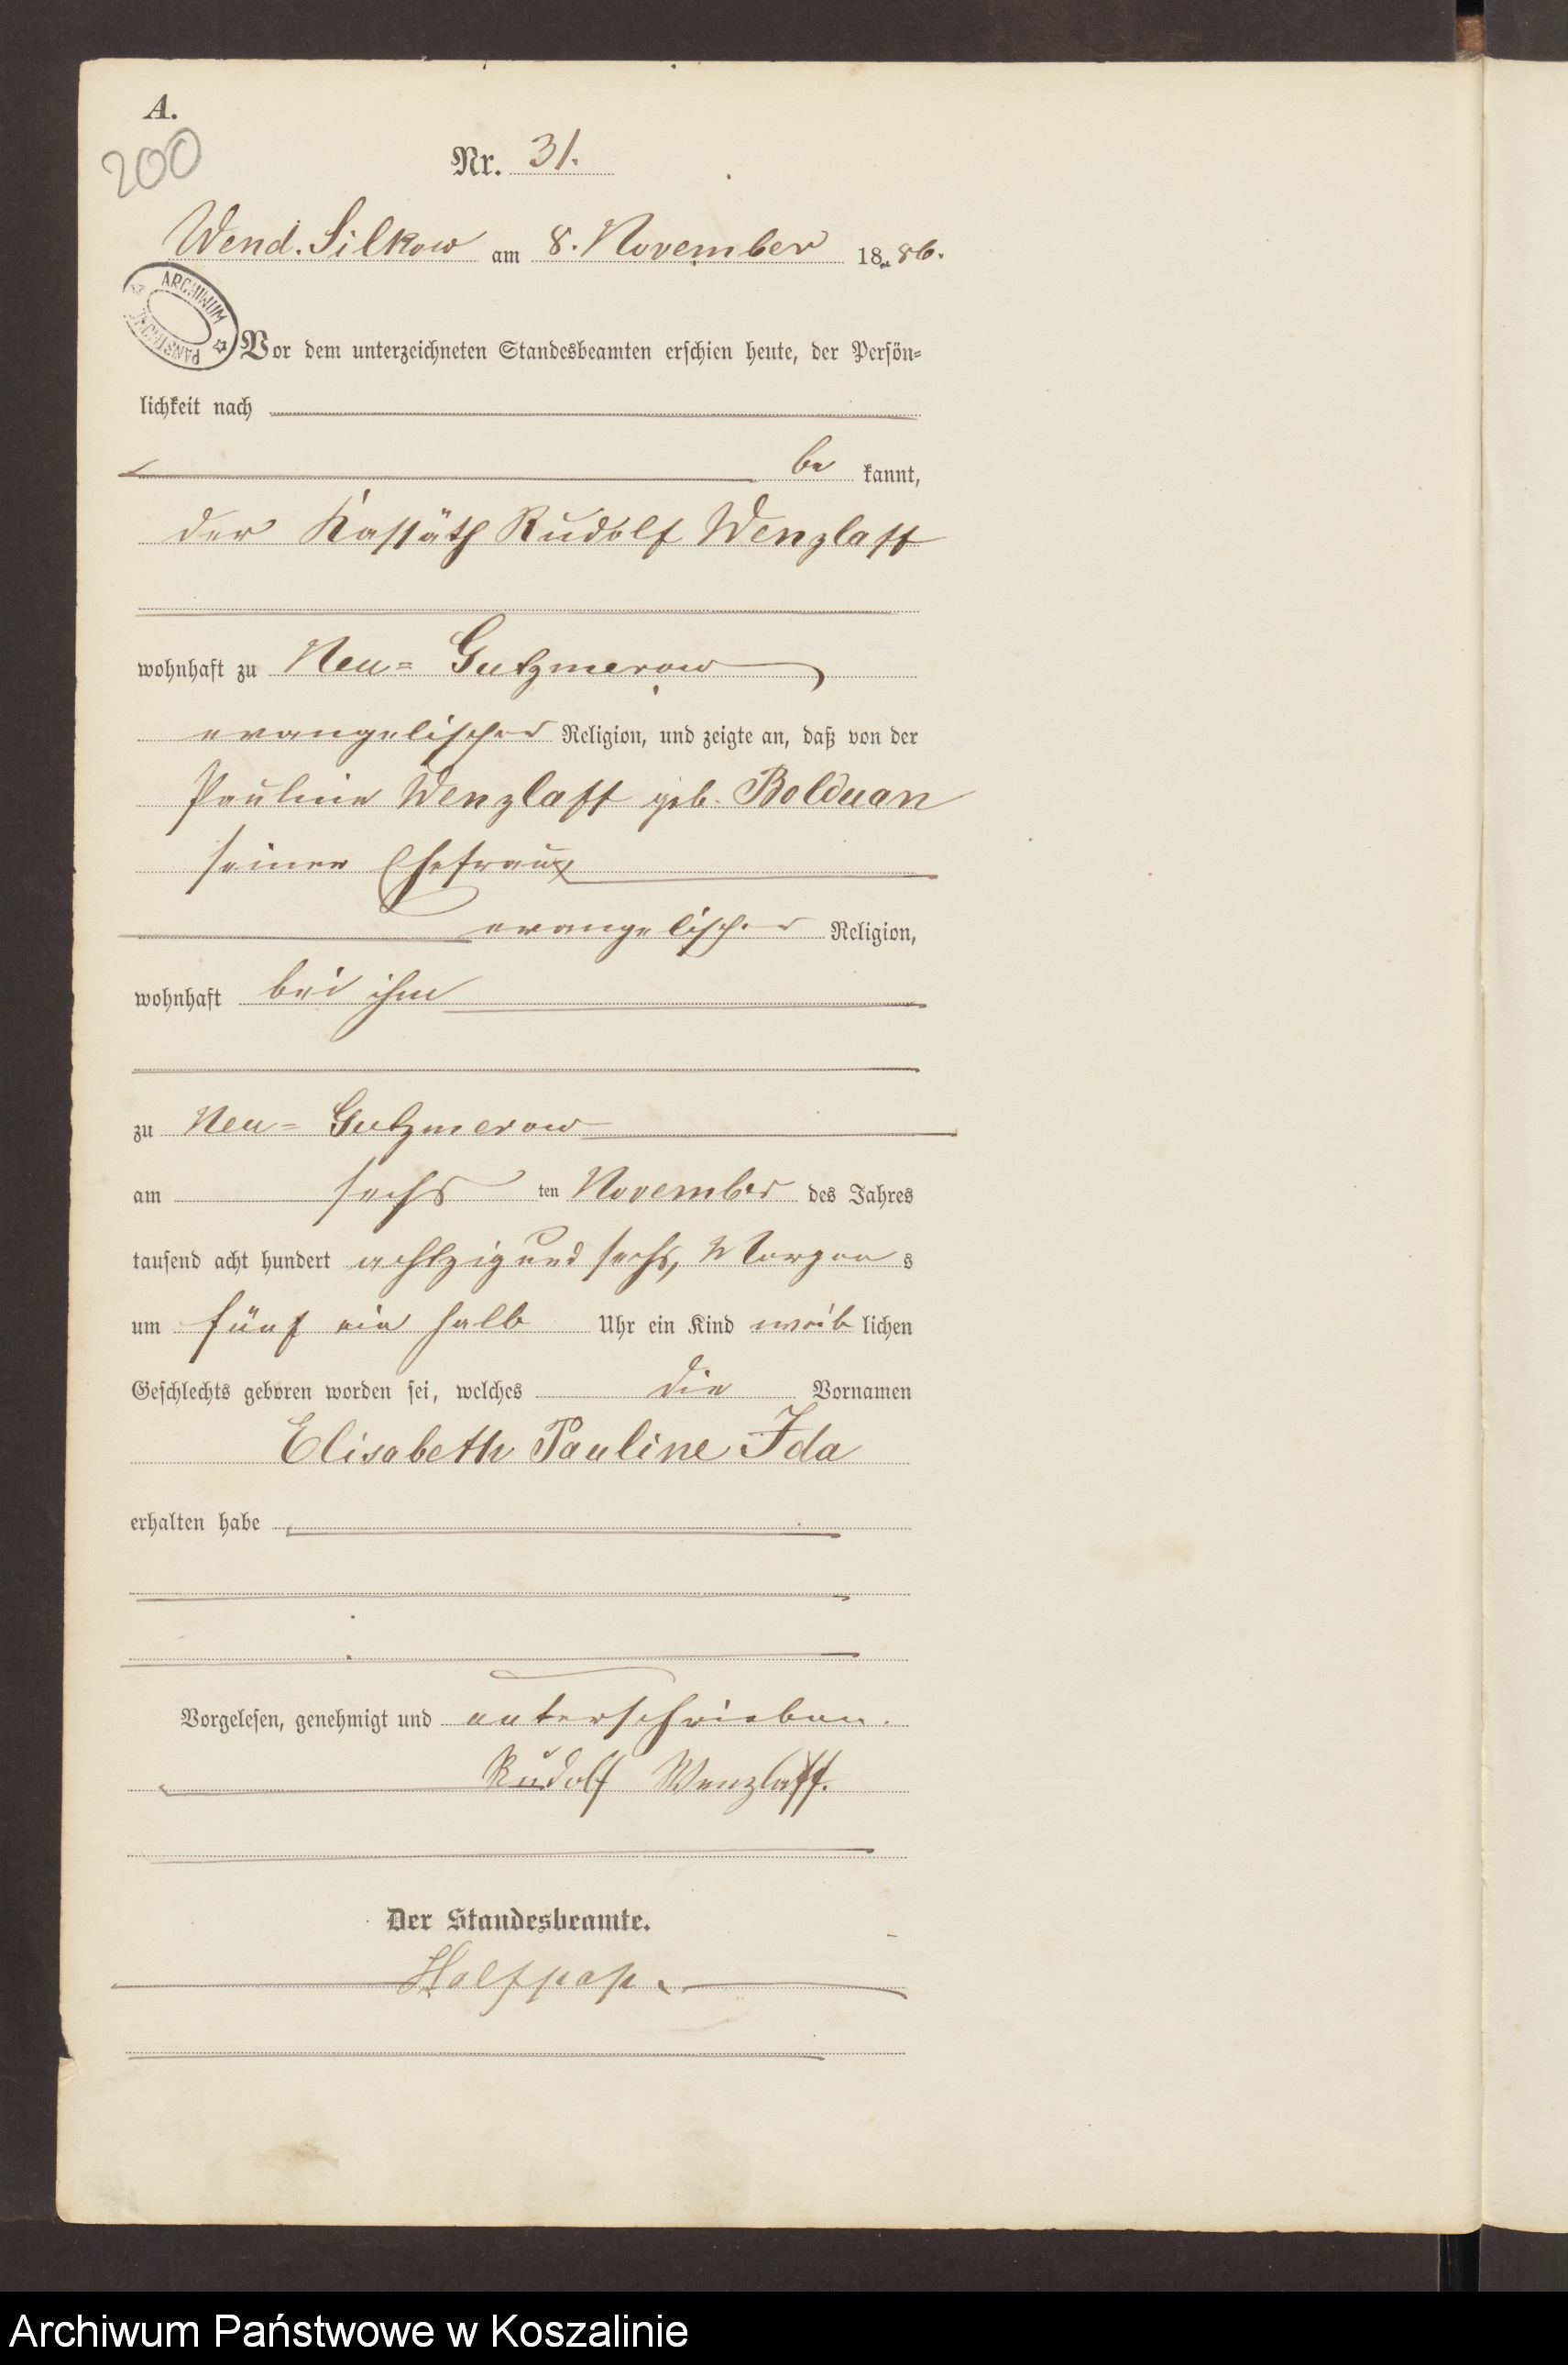 A.
200
Nr. 31.
Wend. Silkow am 8. November 1886.
ARCHIWUM PAŃSTWOWE
Vor dem unterzeichneten Standesbeamten erschien heute, der Persön=
lichkeit nach
be kannt,
der Kossäth Rudolf Wenzlaff
wohnhaft zu Neu=Gutzmerow
evangelischer Religion, und zeigte an, daß von der
Pauline Wenzlaff geb. Bolduan
seiner Ehefrau
evangelischer Religion,
wohnhaft bei ihm
zu Neu=Gutzmerow
am sechs ten November des Jahres
tausend acht hundert achtzig und sechs, Morgens
um fünf ein halb Uhr ein Kind weiblichen
Geschlechts geboren worden sei, welches die Vornamen
Elisabeth Pauline Ida
erhalten habe
Vorgelesen, genehmigt und unterschrieben.
Rudolf Wenzlaff.
Der Standesbeamte.
Halfpap.
Archiwum Państwowe w Koszalinie